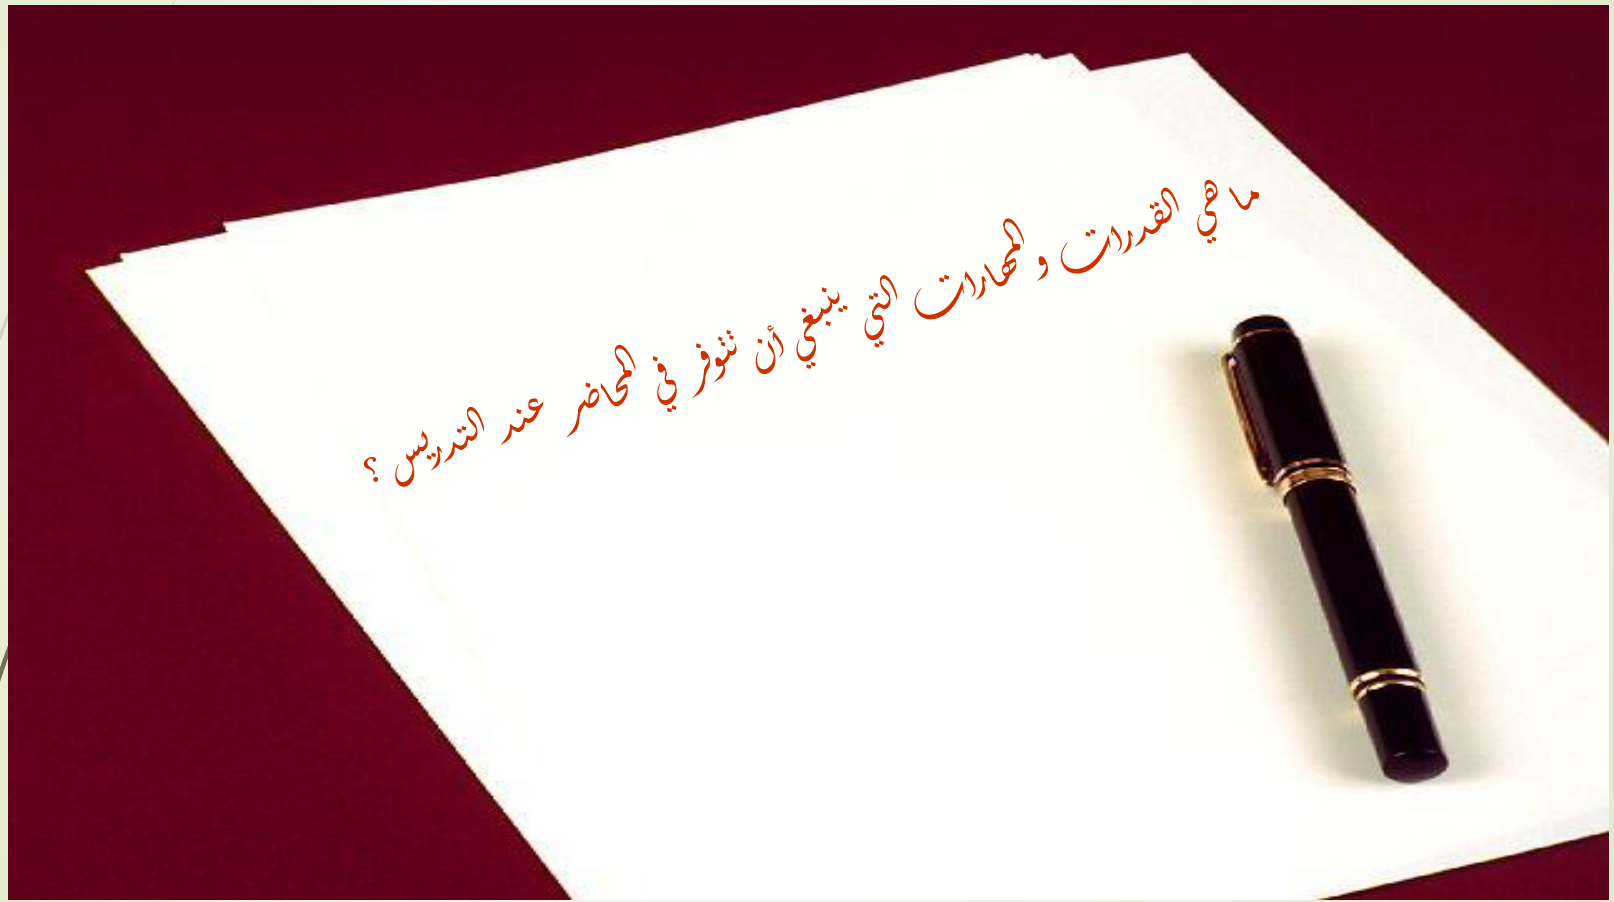 ما هي القدرات و المهارات التي ينبغي أن تتوفر في المحاضر عند التدريس ؟